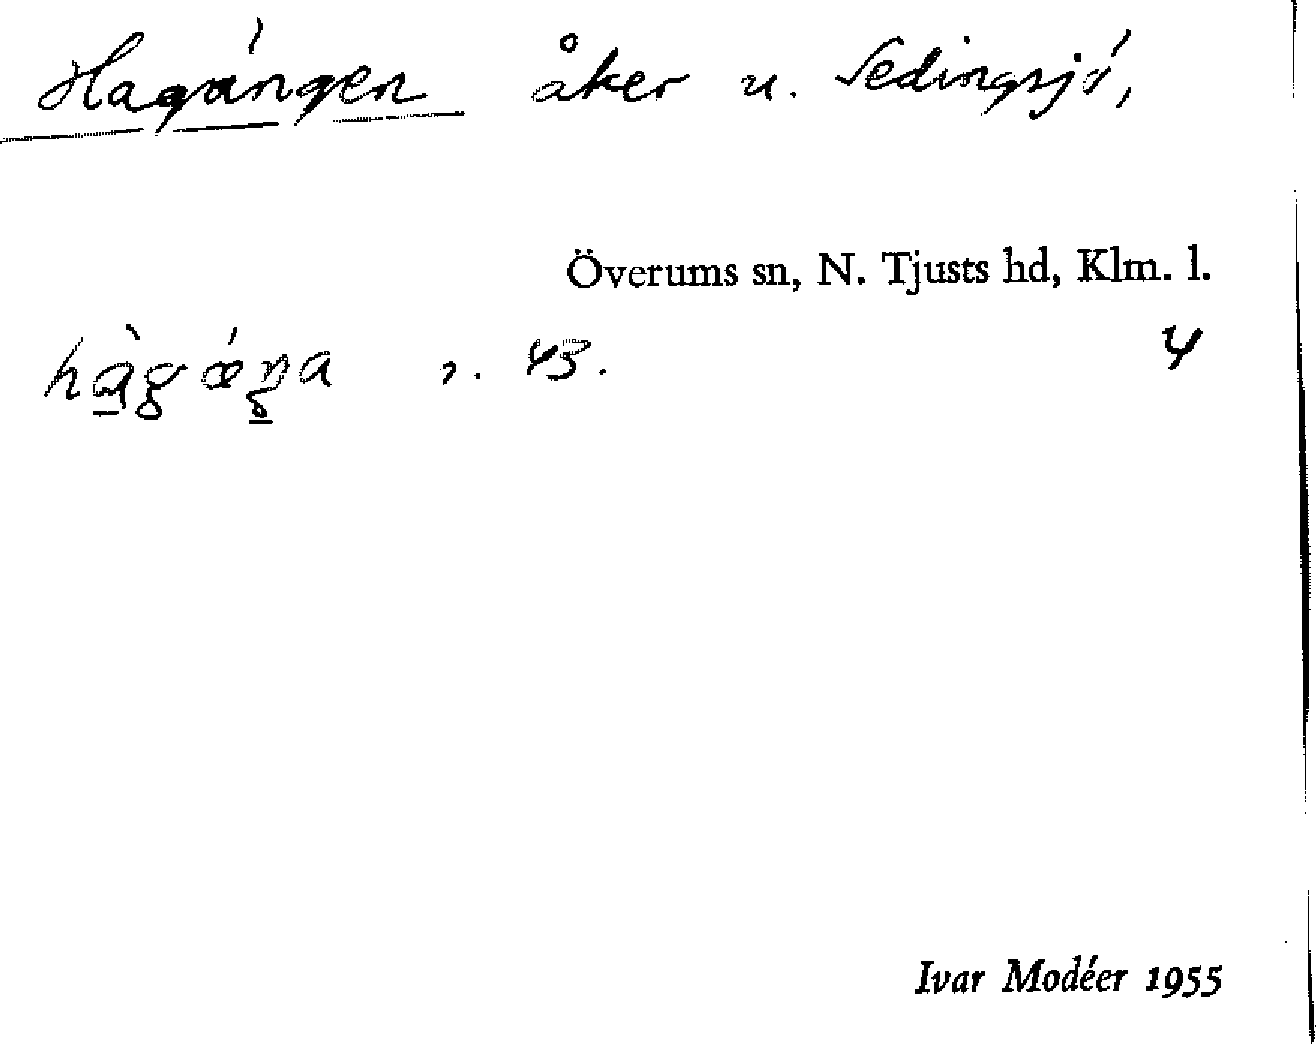 Hagängen åker u. Sedingsjö,
Överums sn, N. Tjusts hd, Klm. l.
hàgǽŋa r. 43. 4
Ivar Modéer 1955